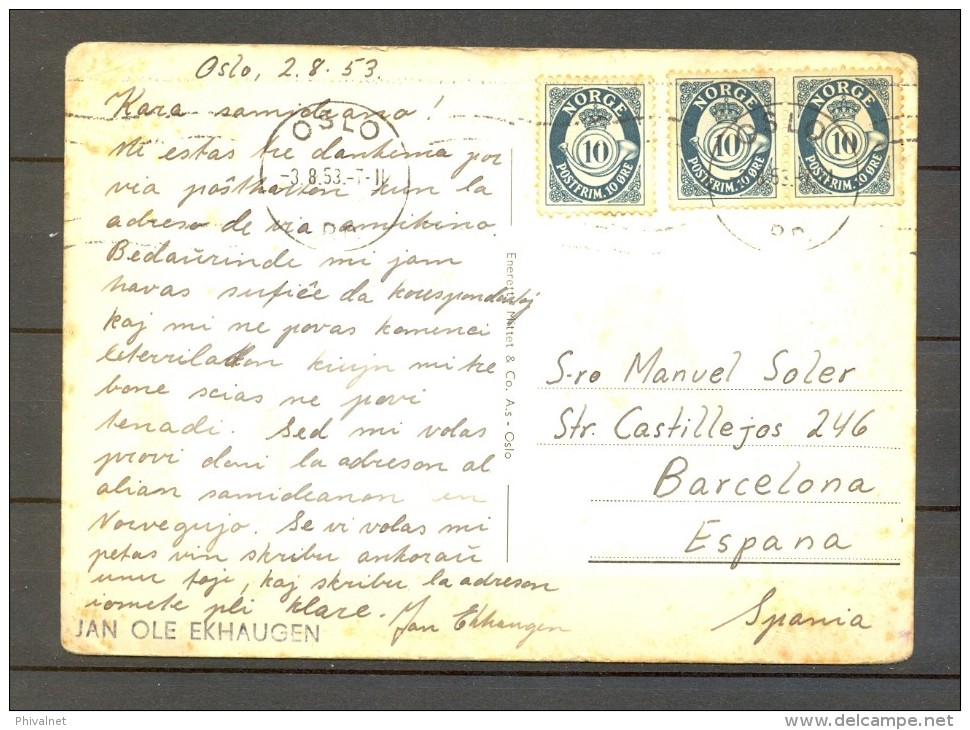 Oslo, 2.8.53.
Kara samideano!
Mi estas tre dankema por
via poŝtkarton kun la
adreso de via amikino.
Bedaŭrinde mi jam
havas sufiĉe da korespondantoj
kaj mi ne povas komenci
kiujn mi tre
bone scias ne povi
tenadi. Sed mi volas
provi doni la adreson al
alian samideanon en
Norvegujo. Se vi volas mi
petas vin skribu ankoraŭ
unu foje, kaj skribu la adreson
iomete pli klare. Jan Ekhaugen
JAN OLE EKHAUGEN
OSLO
-3.8.53.-
NORGE
10
POSTFRIM. 10 ØRE
NORGE
10
POSTFRIM. 10 ØRE
NORGE
10
POSTFRIM. 10 ØRE
OSLO
Eneretti Mittet & Co. A.s - Oslo
S-ro Manuel Soler
Str. Castillejos 246
Barcelona
Espana
Spania
Phivalnet
www.delcampe.net